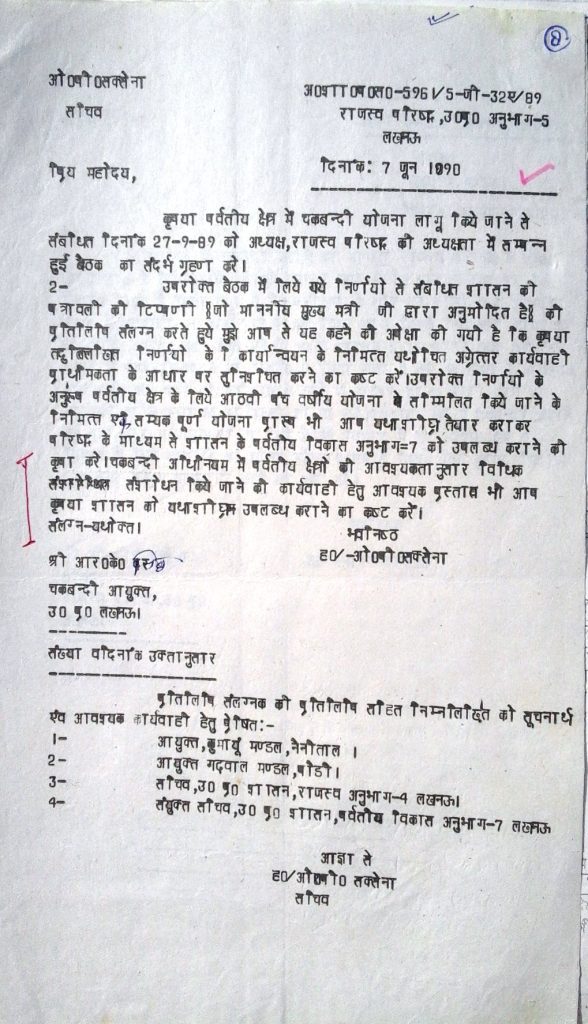 8
ओ0पी0सक्सेना
सचिव
अ0शा0प0स0-596।/5-जी-32ए/89
राजस्व परिषद,उ0प्र0 अनुभाग-5
लखनऊ
प्रिय महोदय,
दिनांक: 7 जून 1990
कृपया पर्वतीय क्षेत्र में चकबन्दी योजना लागू किये जाने से
संबंधित दिनांक 27-9-89 को अध्यक्ष,राजस्व परिषद की अध्यक्षता में सम्पन्न
हुई बैठक का संदर्भ ग्रहण करें।
2- उपरोक्त बैठक में लिये गये निर्णयों से संबंधित शासन की
पत्रावली की टिप्पणी (जो माननीय मुख्य मंत्री जी द्वारा अनुमोदित है) की
प्रतिलिपि संलग्न करते हुये मुझे आप से यह कहने की अपेक्षा की गयी है कि कृपया
तदुल्लिखित निर्णयों के कार्यान्वयन के निमित्त यथोचित अग्रेत्तर कार्यवाही
प्राथमिकता के आधार पर सुनिश्चित करने का कष्ट करें।उपरोक्त निर्णयों के
अनुरूप पर्वतीय क्षेत्र के लिये आठवी पंच वर्षीय योजना में सम्मिलित किये जाने के
निमित्त एक सम्यक पूर्ण योजना प्रारूप भी आप यथाशीघ्र तैयार कराकर
परिषद के माध्यम से शासन के पर्वतीय विकास अनुभाग=7 को उपलब्ध कराने की
कृपा करें।चकबन्दी अधिनियम में पर्वतीय क्षेत्रों की आवश्यकतानुसार विधिक
संशोधन किये जाने की कार्यवाही हेतु आवश्यक प्रस्ताव भी आप
कृपया शासन को यथाशीघ्र उपलब्ध कराने का कष्ट करें।
संलग्न-यथोक्त।
भवनिष्ठ
ह0/-ओ0पी0सक्सेना
श्री आर0के0
चकबन्दी आयुक्त,
उ0 प्र0 लखनऊ।
संख्या वदिनांक उक्तानुसार
प्रतिलिपि संलग्नक की प्रतिलिपि सहित निम्नलिखित को सूचनार्थ
एंव आवश्यक कार्यवाही हेतु प्रेषित:-
1- आयुक्त,कुमायूं मण्डल,नैनीताल ।
2- आयुक्त गढवाल मण्डल,पौडी।
3- सचिव,उ0 प्र0 शासन,राजस्व अनुभाग-4 लखनऊ।
4- संयुक्त सचिव,उ0 प्र0 शासन,पर्वतीय विकास अनुभाग-7 लखनऊ
आज्ञा से
ह0/ओ0पी0 सक्सेना
सचिव